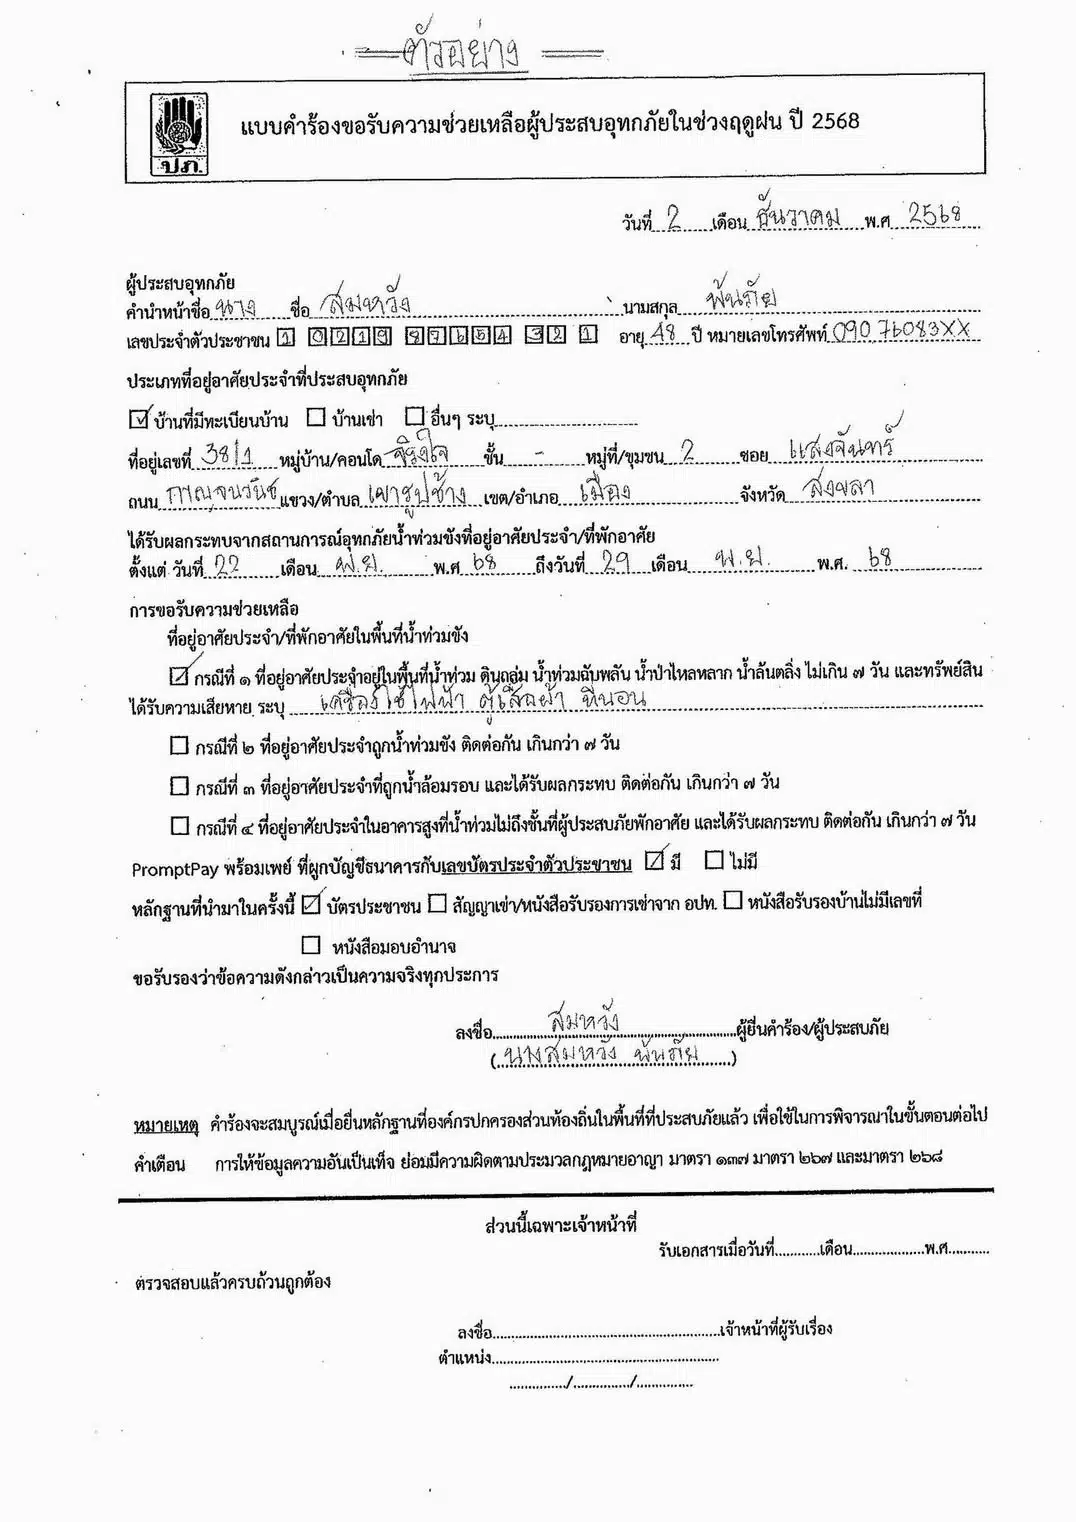 ตัวอย่าง
ปภ.
แบบคำร้องขอรับความช่วยเหลือผู้ประสบอุทกภัยในช่วงฤดูฝน ปี 2568
วันที่ 2 เดือน ธันวาคม พ.ศ. 2568
ผู้ประสบอุทกภัย
คำนำหน้าชื่อ นาง ชื่อ สมหวัง นามสกุล พ้นภัย
เลขประจำตัวประชาชน 1 0219 87654 32 1 อายุ 48 ปี หมายเลขโทรศัพท์ 090 76083XX
ประเภทที่อยู่อาศัยประจำที่ประสบอุทกภัย
☑ บ้านที่มีทะเบียนบ้าน ☐ บ้านเช่า ☐ อื่นๆ ระบุ
ที่อยู่เลขที่ 38/1 หมู่บ้าน/คอนโด จริงใจ ชั้น - หมู่ที่/ชุมชน 2 ซอย แสงจันทร์
ถนน กาญจนวนิช แขวง/ตำบล เขารูปช้าง เขต/อำเภอ เมือง จังหวัด สงขลา
ได้รับผลกระทบจากสถานการณ์อุทกภัยน้ำท่วมขังที่อยู่อาศัยประจำ/ที่พักอาศัย
ตั้งแต่ วันที่ 22 เดือน พ.ย. พ.ศ 68 ถึงวันที่ 29 เดือน พ.ย. พ.ศ. 68
การขอรับความช่วยเหลือ
ที่อยู่อาศัยประจำ/ที่พักอาศัยในพื้นที่น้ำท่วมขัง
☑ กรณีที่ ๑ ที่อยู่อาศัยประจำอยู่ในพื้นที่น้ำท่วม ดินถล่ม น้ำท่วมฉับพลัน น้ำป่าไหลหลาก น้ำล้นตลิ่ง ไม่เกิน ๗ วัน และทรัพย์สิน
ได้รับความเสียหาย ระบุ เครื่องใช้ไฟฟ้า ตู้เสื้อผ้า ที่นอน
☐ กรณีที่ ๒ ที่อยู่อาศัยประจำถูกน้ำท่วมขัง ติดต่อกัน เกินกว่า ๗ วัน
☐ กรณีที่ ๓ ที่อยู่อาศัยประจำที่ถูกน้ำล้อมรอบ และได้รับผลกระทบ ติดต่อกัน เกินกว่า ๗ วัน
☐ กรณีที่ ๔ ที่อยู่อาศัยประจำในอาคารสูงที่น้ำท่วมไม่ถึงชั้นที่ผู้ประสบภัยพักอาศัย และได้รับผลกระทบ ติดต่อกัน เกินกว่า ๗ วัน
PromptPay พร้อมเพย์ ที่ผูกบัญชีธนาคารกับเลขบัตรประจำตัวประชาชน ☑ มี ☐ ไม่มี
หลักฐานที่นำมาในครั้งนี้ ☑ บัตรประชาชน ☐ สัญญาเช่า/หนังสือรับรองการเช่าจาก อปท. ☐ หนังสือรับรองบ้านไม่มีเลขที่
☐ หนังสือมอบอำนาจ
ขอรับรองว่าข้อความดังกล่าวเป็นความจริงทุกประการ
ลงชื่อ สมหวัง ผู้ยื่นคำร้อง/ผู้ประสบภัย
(นางสมหวัง พ้นภัย)
หมายเหตุ คำร้องจะสมบูรณ์เมื่อยื่นหลักฐานที่องค์กรปกครองส่วนท้องถิ่นในพื้นที่ที่ประสบภัยแล้ว เพื่อใช้ในการพิจารณาในขั้นตอนต่อไป
คำเตือน การให้ข้อมูลความอันเป็นเท็จ ย่อมมีความผิดตามประมวลกฎหมายอาญา มาตรา ๑๓๗ มาตรา ๒๖๗ และมาตรา ๒๖๘
ส่วนนี้เฉพาะเจ้าหน้าที่
รับเอกสารเมื่อวันที่............เดือน...................พ.ศ...........
ตรวจสอบแล้วครบถ้วนถูกต้อง
ลงชื่อ............................................................เจ้าหน้าที่ผู้รับเรื่อง
ตำแหน่ง............................................................
.............../.............../...............